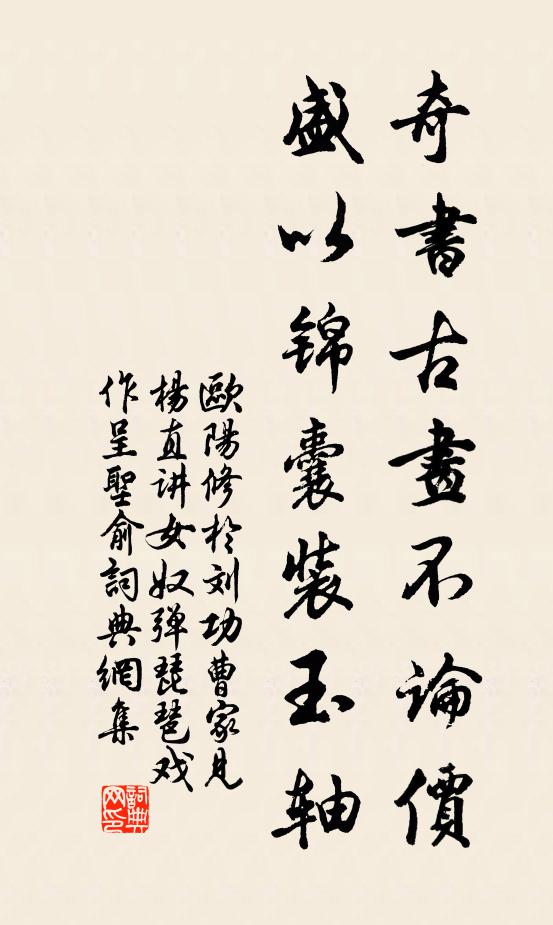 奇書古畫不論價
盛以錦囊裝玉軸
歐陽修於刘功曹家見
楊直讲女奴弹琵琶戏
作呈聖俞詞典網集
詞典
网印